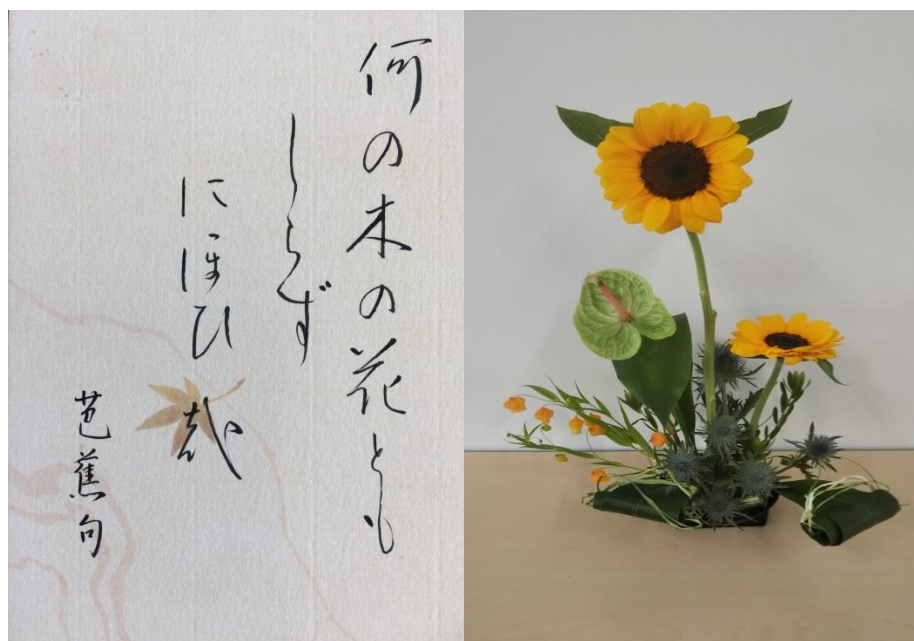 何の木の花とも
しらず
にほひ哉
芭蕉句